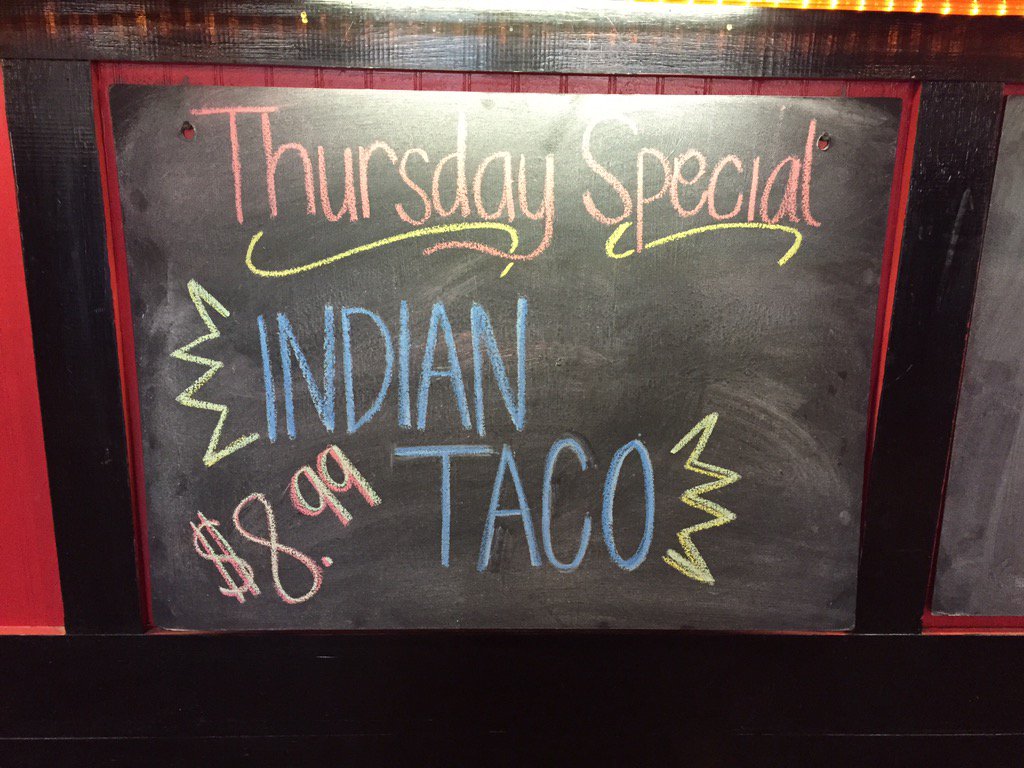 Thursday Special
INDIAN
TACO
$8.99